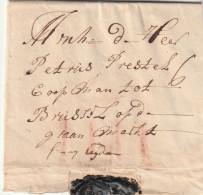 Mnh de Heer
Petrus Prestel
Coopman tot
Brussel op de
graan Marckt